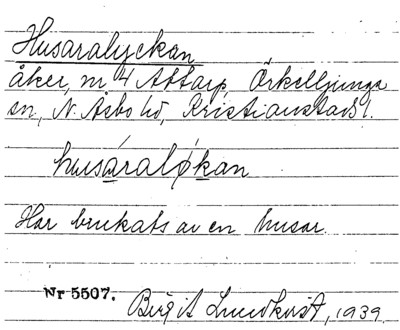 Husaralyckan
åker, nr 4 Attarp, Örkelljunga
sn, N. Åsbo hd, Kristianstads l.
husáraløkan
Har brukats av en husar.
Nr 5507. Birgit Lundkvist, 1939.